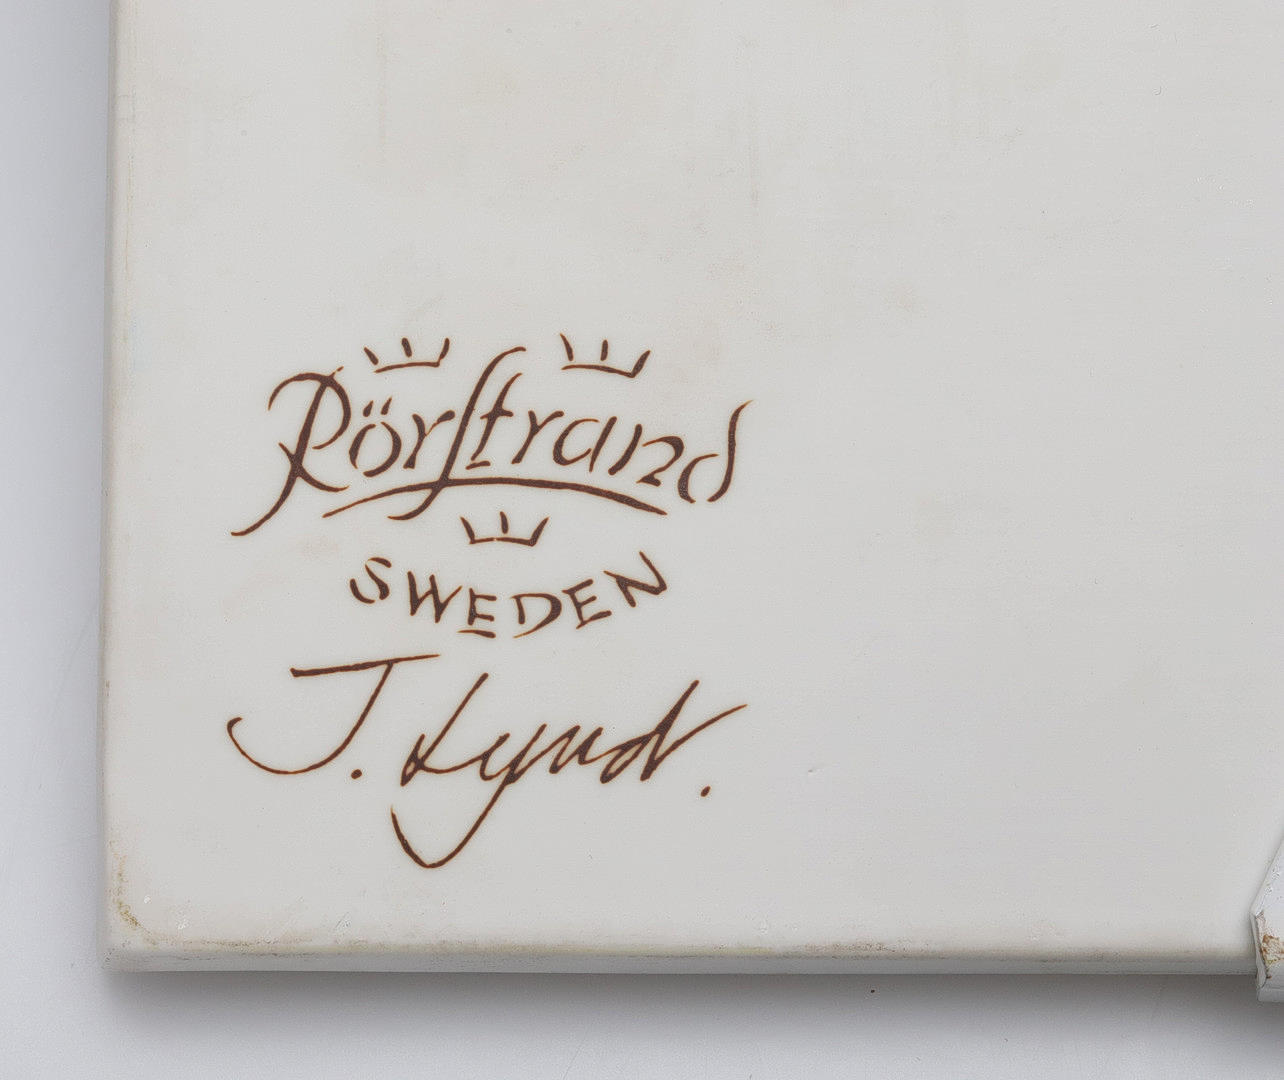 Rörstrand
SWEDEN
J. Lynd.